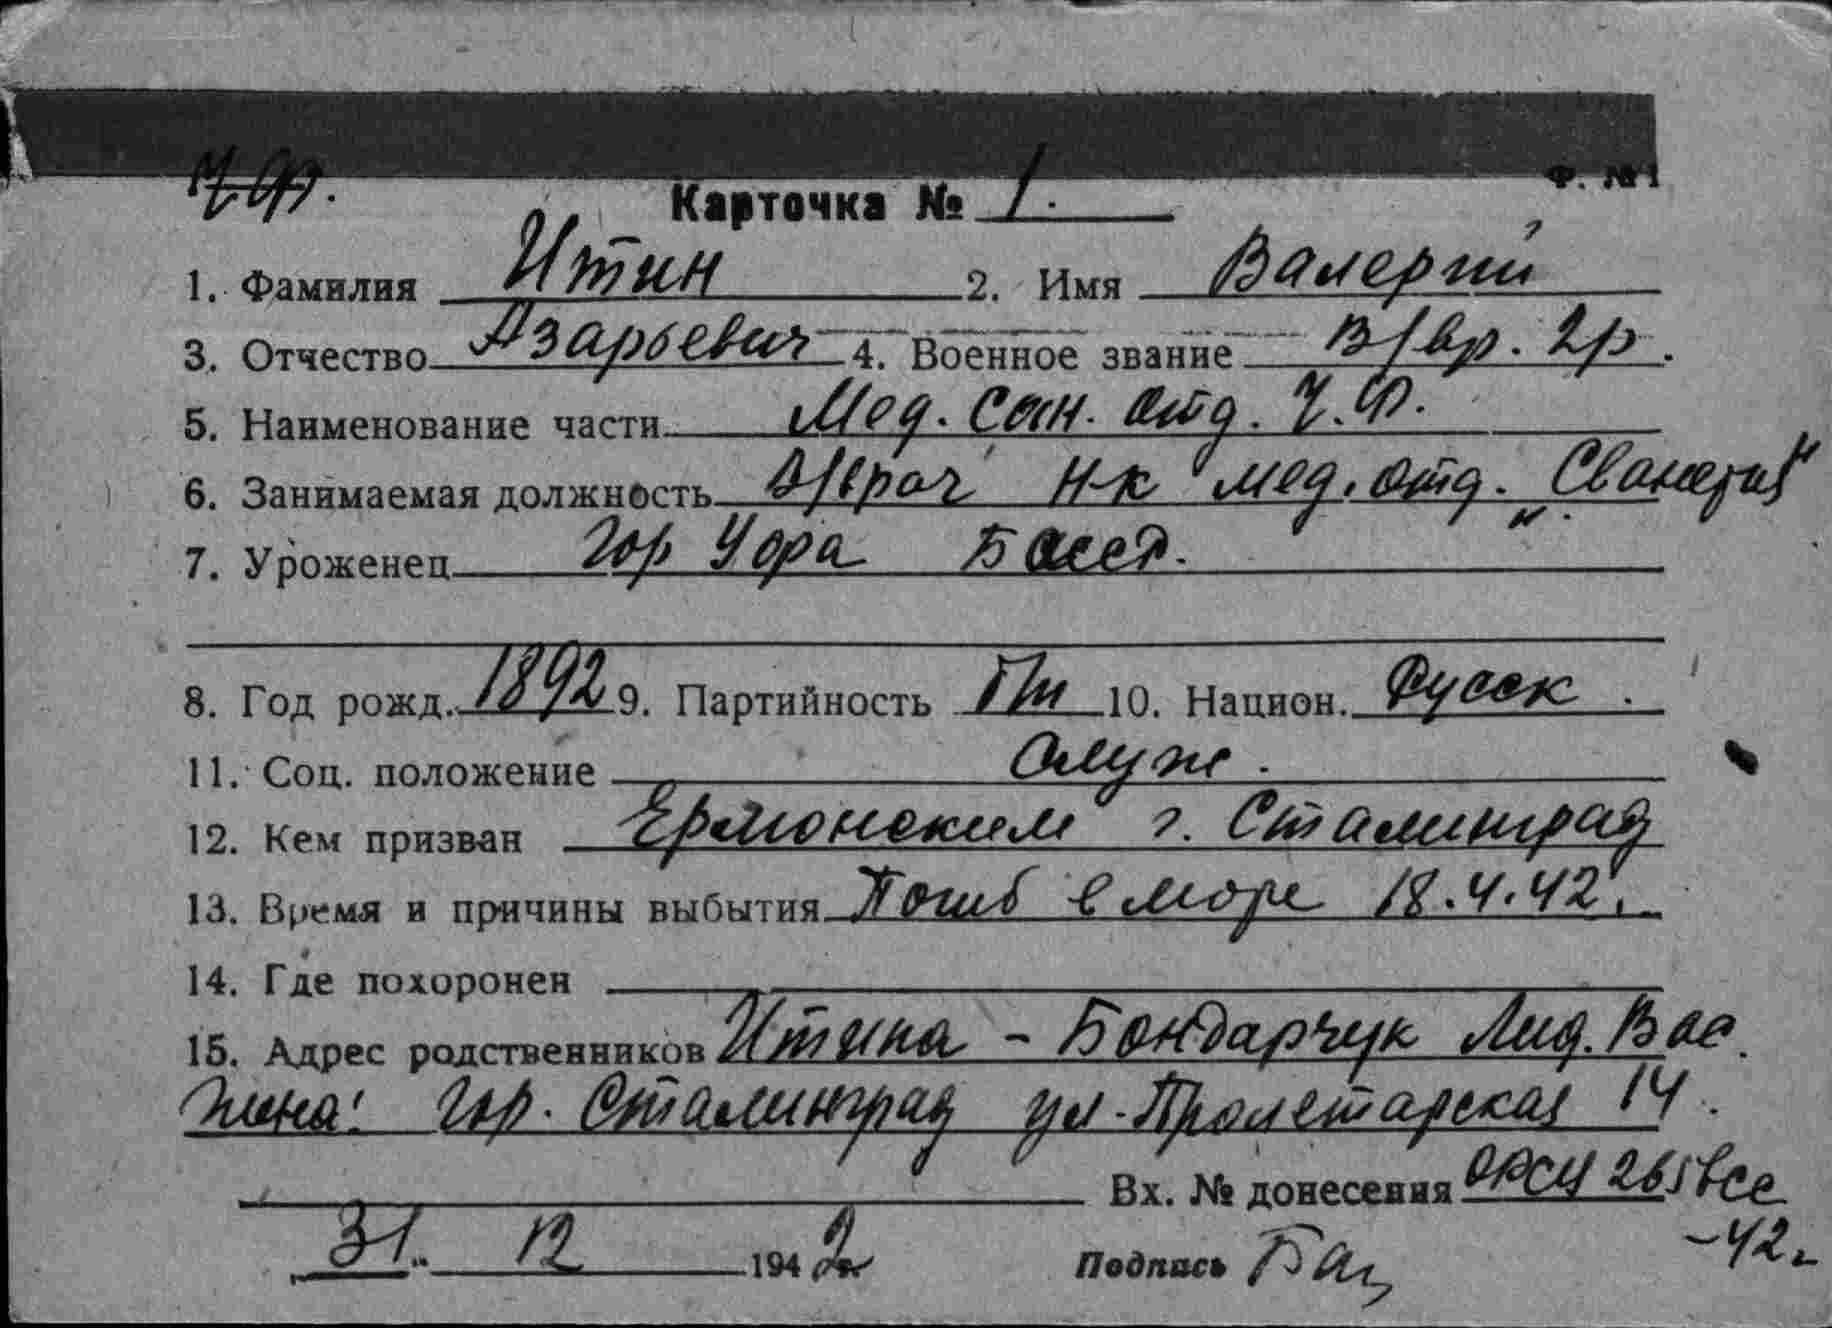 Ч.Ф.
Ф. №1
Карточка № 1.
1. Фамилия Итин 2. Имя Валерий
3. Отчество Азарьевич 4. Военное звание В/вр. 2р.
5. Наименование части Мед. Сан. отд. Ч.Ф.
6. Занимаемая должность В/врач н-к мед. отд. "Сванетия"
7. Уроженец Гор
8. Год рожд. 1892 9. Партийность 10. Национ. Русск.
11. Соц. положение Служ.
12. Кем призван г. Сталинград
13. Время и причины выбытия Погиб в море 18.4.42.
14. Где похоронен
15. Адрес родственников Итина - Бондарчук Лид. Вас.
жена: Гор. Сталинград ул. Пролетарская 14.
Вх. № донесения
-42г.
31. 12 1942 Подпись